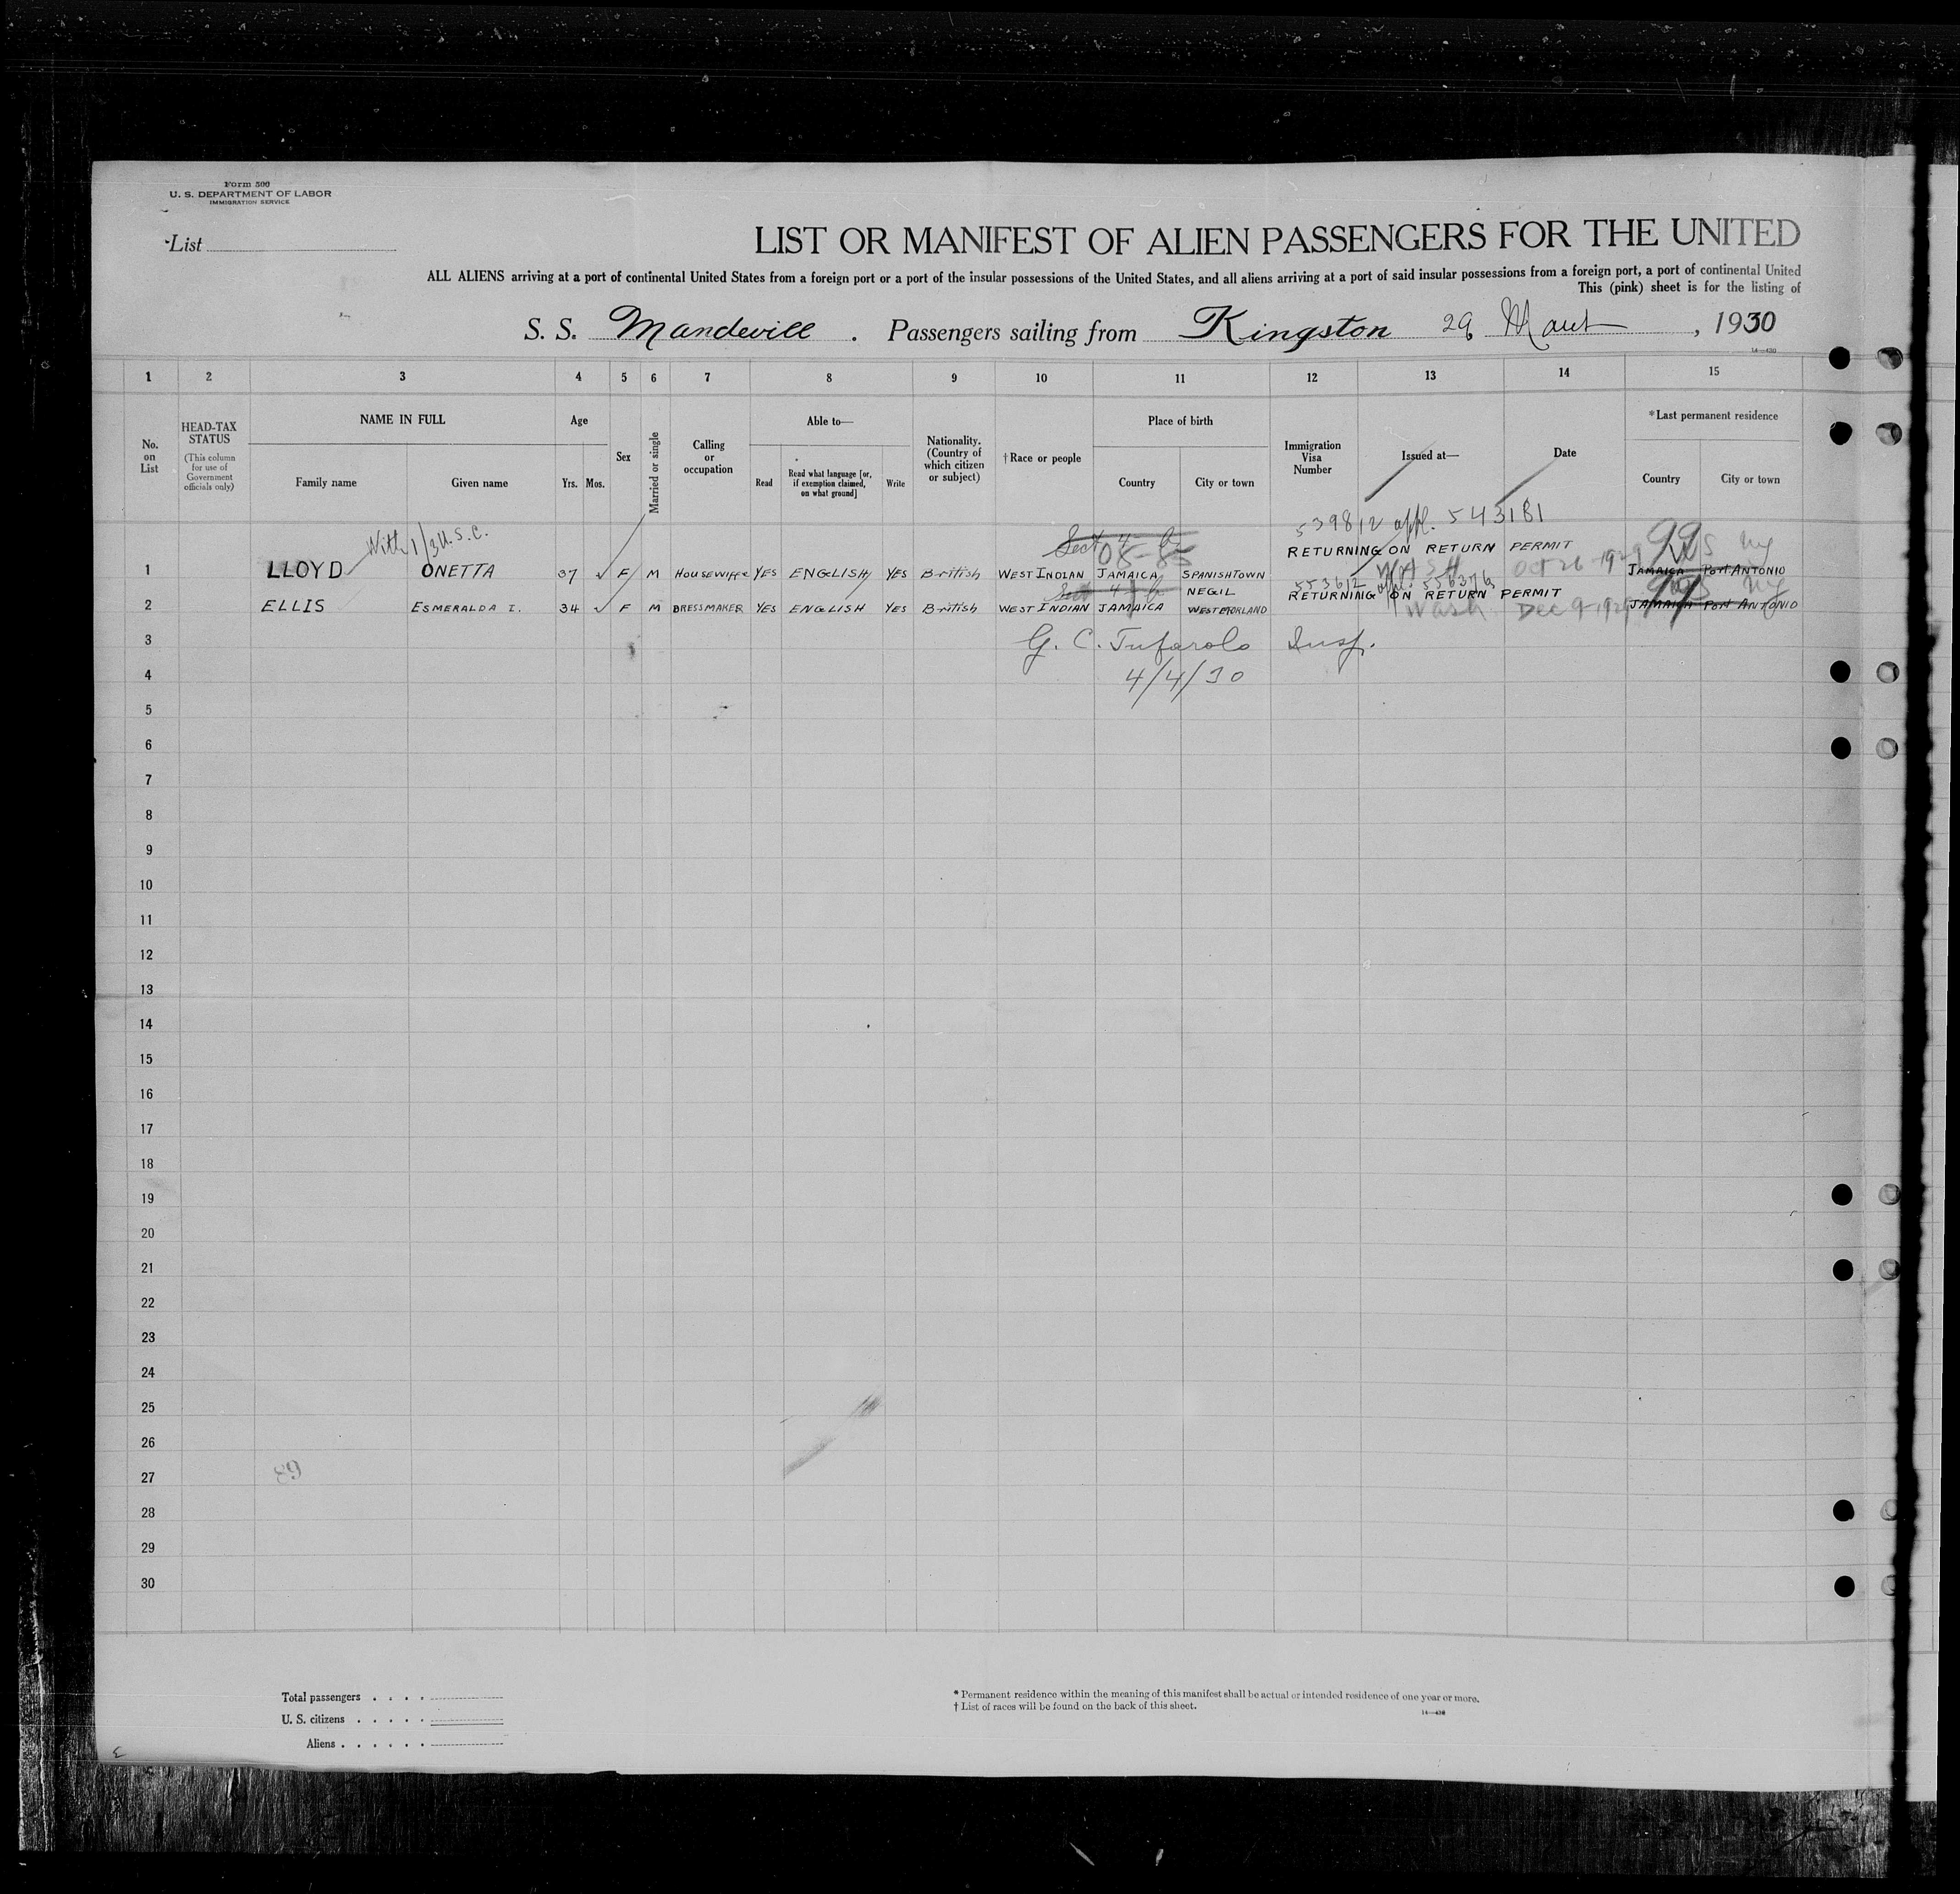 Form 500
U. S. DEPARTMENT OF LABOR
IMMIGRATION SERVICE
List
LIST OR MANIFEST OF ALIEN PASSENGERS FOR THE UNITED
ALL ALIENS arriving at a port of continental United States from a foreign port or a port of the insular possessions of the United States, and all aliens arriving at a port of said insular possessions from a foreign port, a port of continental United
This (pink) sheet is for the listing of
S. S. Mandevill . Passengers sailing from Kingston 29 , 1930
14—430
1 2 3 4 5 6 7 8 9 10 11 12 13 14 15
No. on List
HEAD-TAX STATUS
(This column for use of Government officials only)
NAME IN FULL
Family name Given name
Age
Yrs. Mos.
Sex
Married or single
Calling or occupation
Able to—
Read
Read what language [or, if exemption claimed, on what ground]
Write
Nationality. (Country of which citizen or subject)
†Race or people
Place of birth
Country City or town
Immigration Visa Number
Issued at—
Date
*Last permanent residence
Country City or town
With 1/3 U.S.C.
539812 appl. 543181
RETURNING ON RETURN PERMIT
1 LLOYD ONETTA 37 F M HOUSEWIFFE YES ENGLISH YES British WEST INDIAN JAMAICA SPANISHTOWN WASH Oct 26-1929 JAMAICA PORT ANTONIO
NEGIL
553612 appl. 556376
RETURNING ON RETURN PERMIT
2 ELLIS ESMERALDA I. 34 F M DRESSMAKER YES ENGLISH YES British WEST INDIAN JAMAICA WESTMORLAND Wash Dec 9-1929 JAMAICA PORT ANTONIO
3 G. C. Tufarolo Insp.
4 4/4/30
5
6
7
8
9
10
11
12
13
14
15
16
17
18
19
20
21
22
23
24
25
26
27
28
29
30
Total passengers
U. S. citizens
Aliens
* Permanent residence within the meaning of this manifest shall be actual or intended residence of one year or more.
† List of races will be found on the back of this sheet.
14—430